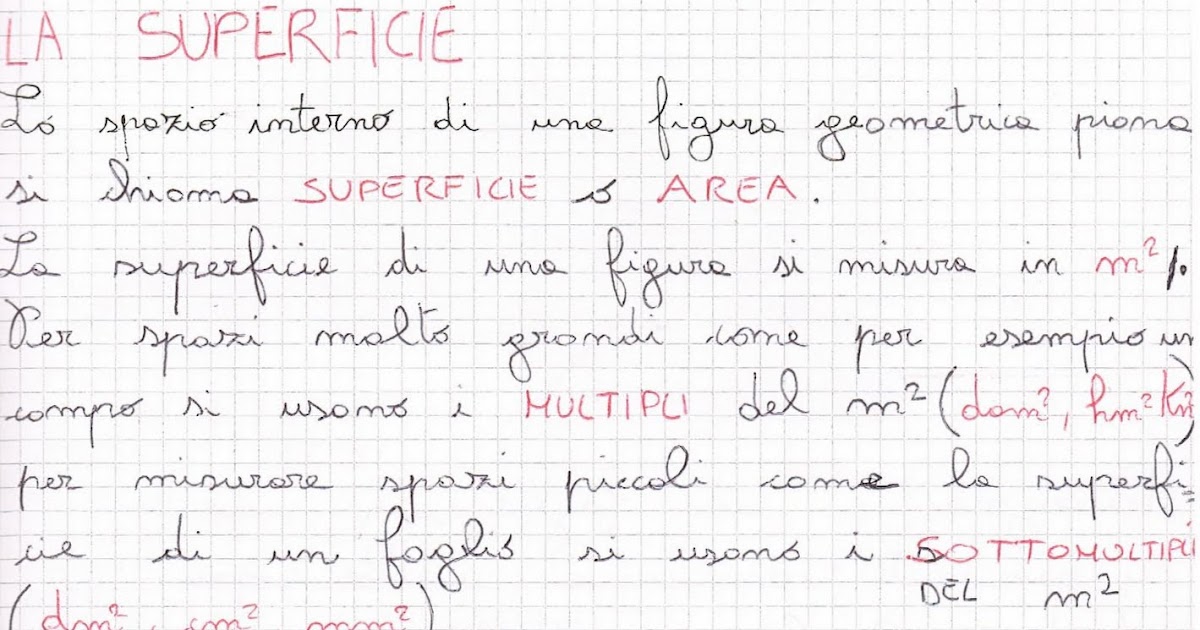 LA SUPERFICIE
Lo spazio interno di una figura geometrica piana
si chiama SUPERFICIE o AREA.
La superficie di una figura si misura in m².
Per spazi molto grandi come per esempio un
campo si usano i MULTIPLI del m² (dam², hm² Km²)
per misurare spazi piccoli come la superfi=
cie di un foglio si usano i SOTTOMULTIPLI
DEL m²
(dm², cm² mm²)